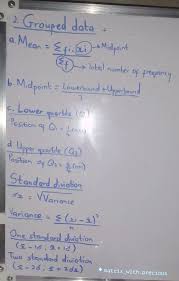 2. Grouped data :
a. Mean = Σfi.xi → Midpoint
Σf → total number of frequency
b. Midpoint = Lowerbound + Upperbound
2
c. Lower quartile (Q
Position of Q₁ =
d. Upper quartile (Q₃)
Position of Q₃ =
Standard diviation
= √Variance
Variance = Σ(xi - x̄)²
n
One standard diviation
Two standard diviation
matrix_with_precious